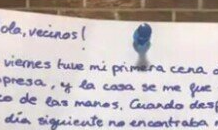 ola, vecinos!
viernes tuve mi primera cena d
presa, y la casa se me fue
co de las manos. Cuando desp
día siguiente no encontraba